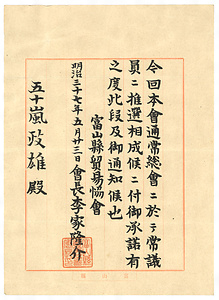 今回本會通常總會ニ於テ常議
員ニ推選相成候ニ付御承諾有
之度此段及御通知候也
富山縣貿易協會
明治三十七年五月廿三日會長李家隆介
五十嵐政雄殿